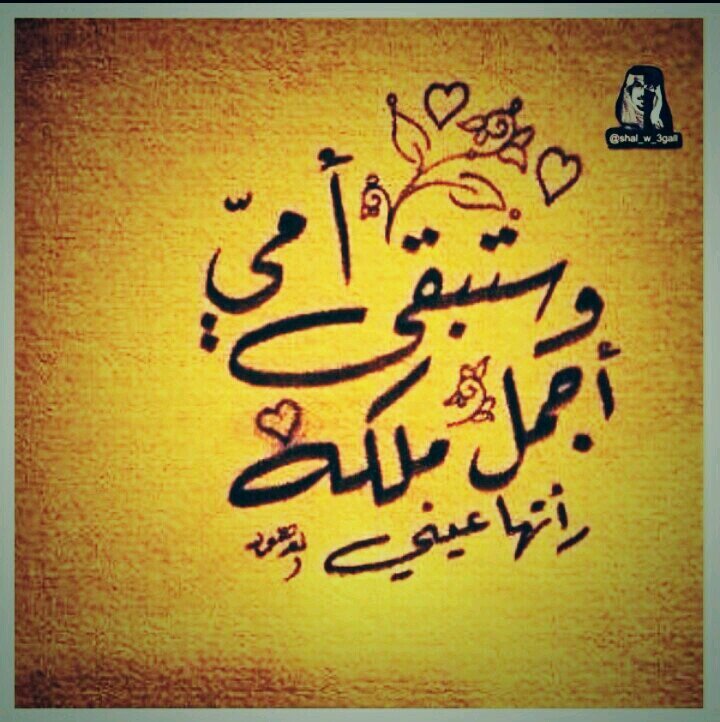 @shal_w_3gall
وستبقى أميّ
أجمل ملكة
رأتها عيني